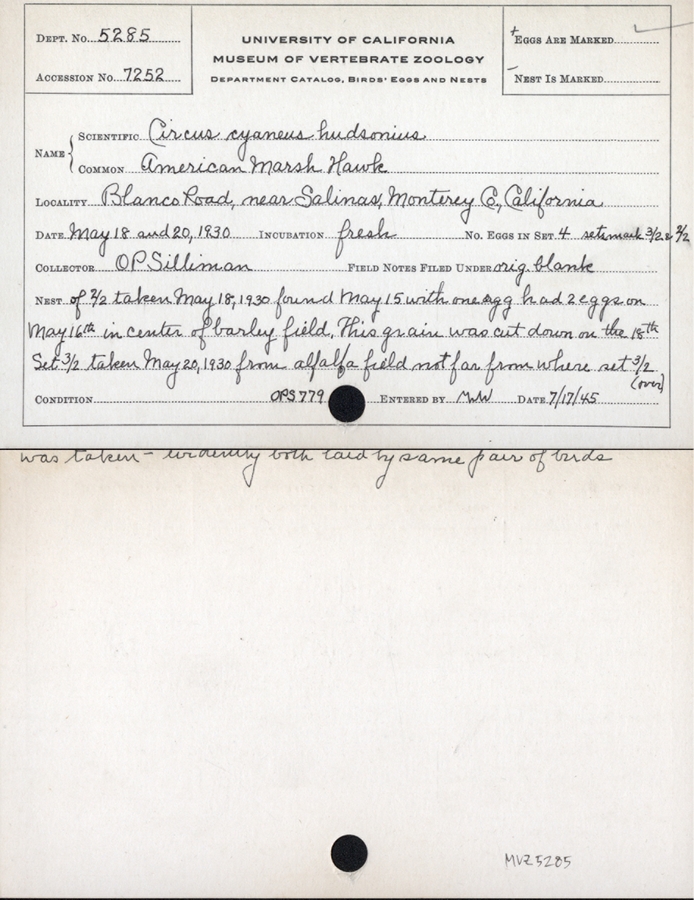 Dept. No. 5285
Accession No. 7252
UNIVERSITY OF CALIFORNIA
MUSEUM OF VERTEBRATE ZOOLOGY
Department Catalog, Birds' Eggs and Nests
+ Eggs Are Marked
- Nest Is Marked
Name { Scientific Circus cyaneus hudsonius
Common American Marsh Hawk
Locality Blanco Road, near Salinas, Monterey Co., California
Date May 18 and 20, 1930 Incubation fresh No. Eggs in Set 4 sets mark 3/2 &
Collector OP Silliman Field Notes Filed Under orig. blank
Nest of 2/2 taken May 18, 1930 found May 15 with one egg had 2 eggs on
May 16th in center of barley field. This grain was cut down on the 18th
Set 3/2 taken May 20, 1930 from alfalfa field not far from where set 3/2
(over)
Condition OPS 779 Entered by MWW Date 7/17/45
was taken - evidently both laid by same pair of birds
MVZ 5285